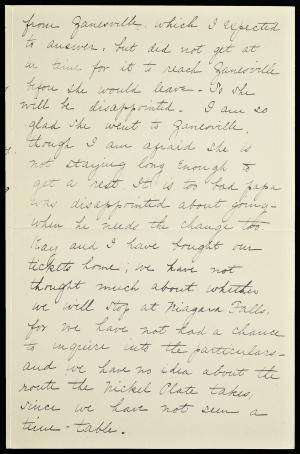 from Zanesville, which I expected
to answer, but did not get at
in time for it to reach Zanesville
before she would leave - So she
will be disappointed. I am so
glad she went to Zanesville,
though I am afraid she is
not staying long enough to
get a rest. It is too bad papa
was disappointed about going -
when he needs the change too.
Kay and I have bought our
tickets home; we have not
thought much about whether
we will stop at Niagara Falls,
for we have not had a chance
to inquire into the particulars -
and we have no idea about the
route the Nickel Plate takes,
since we have not seen a
time-table.